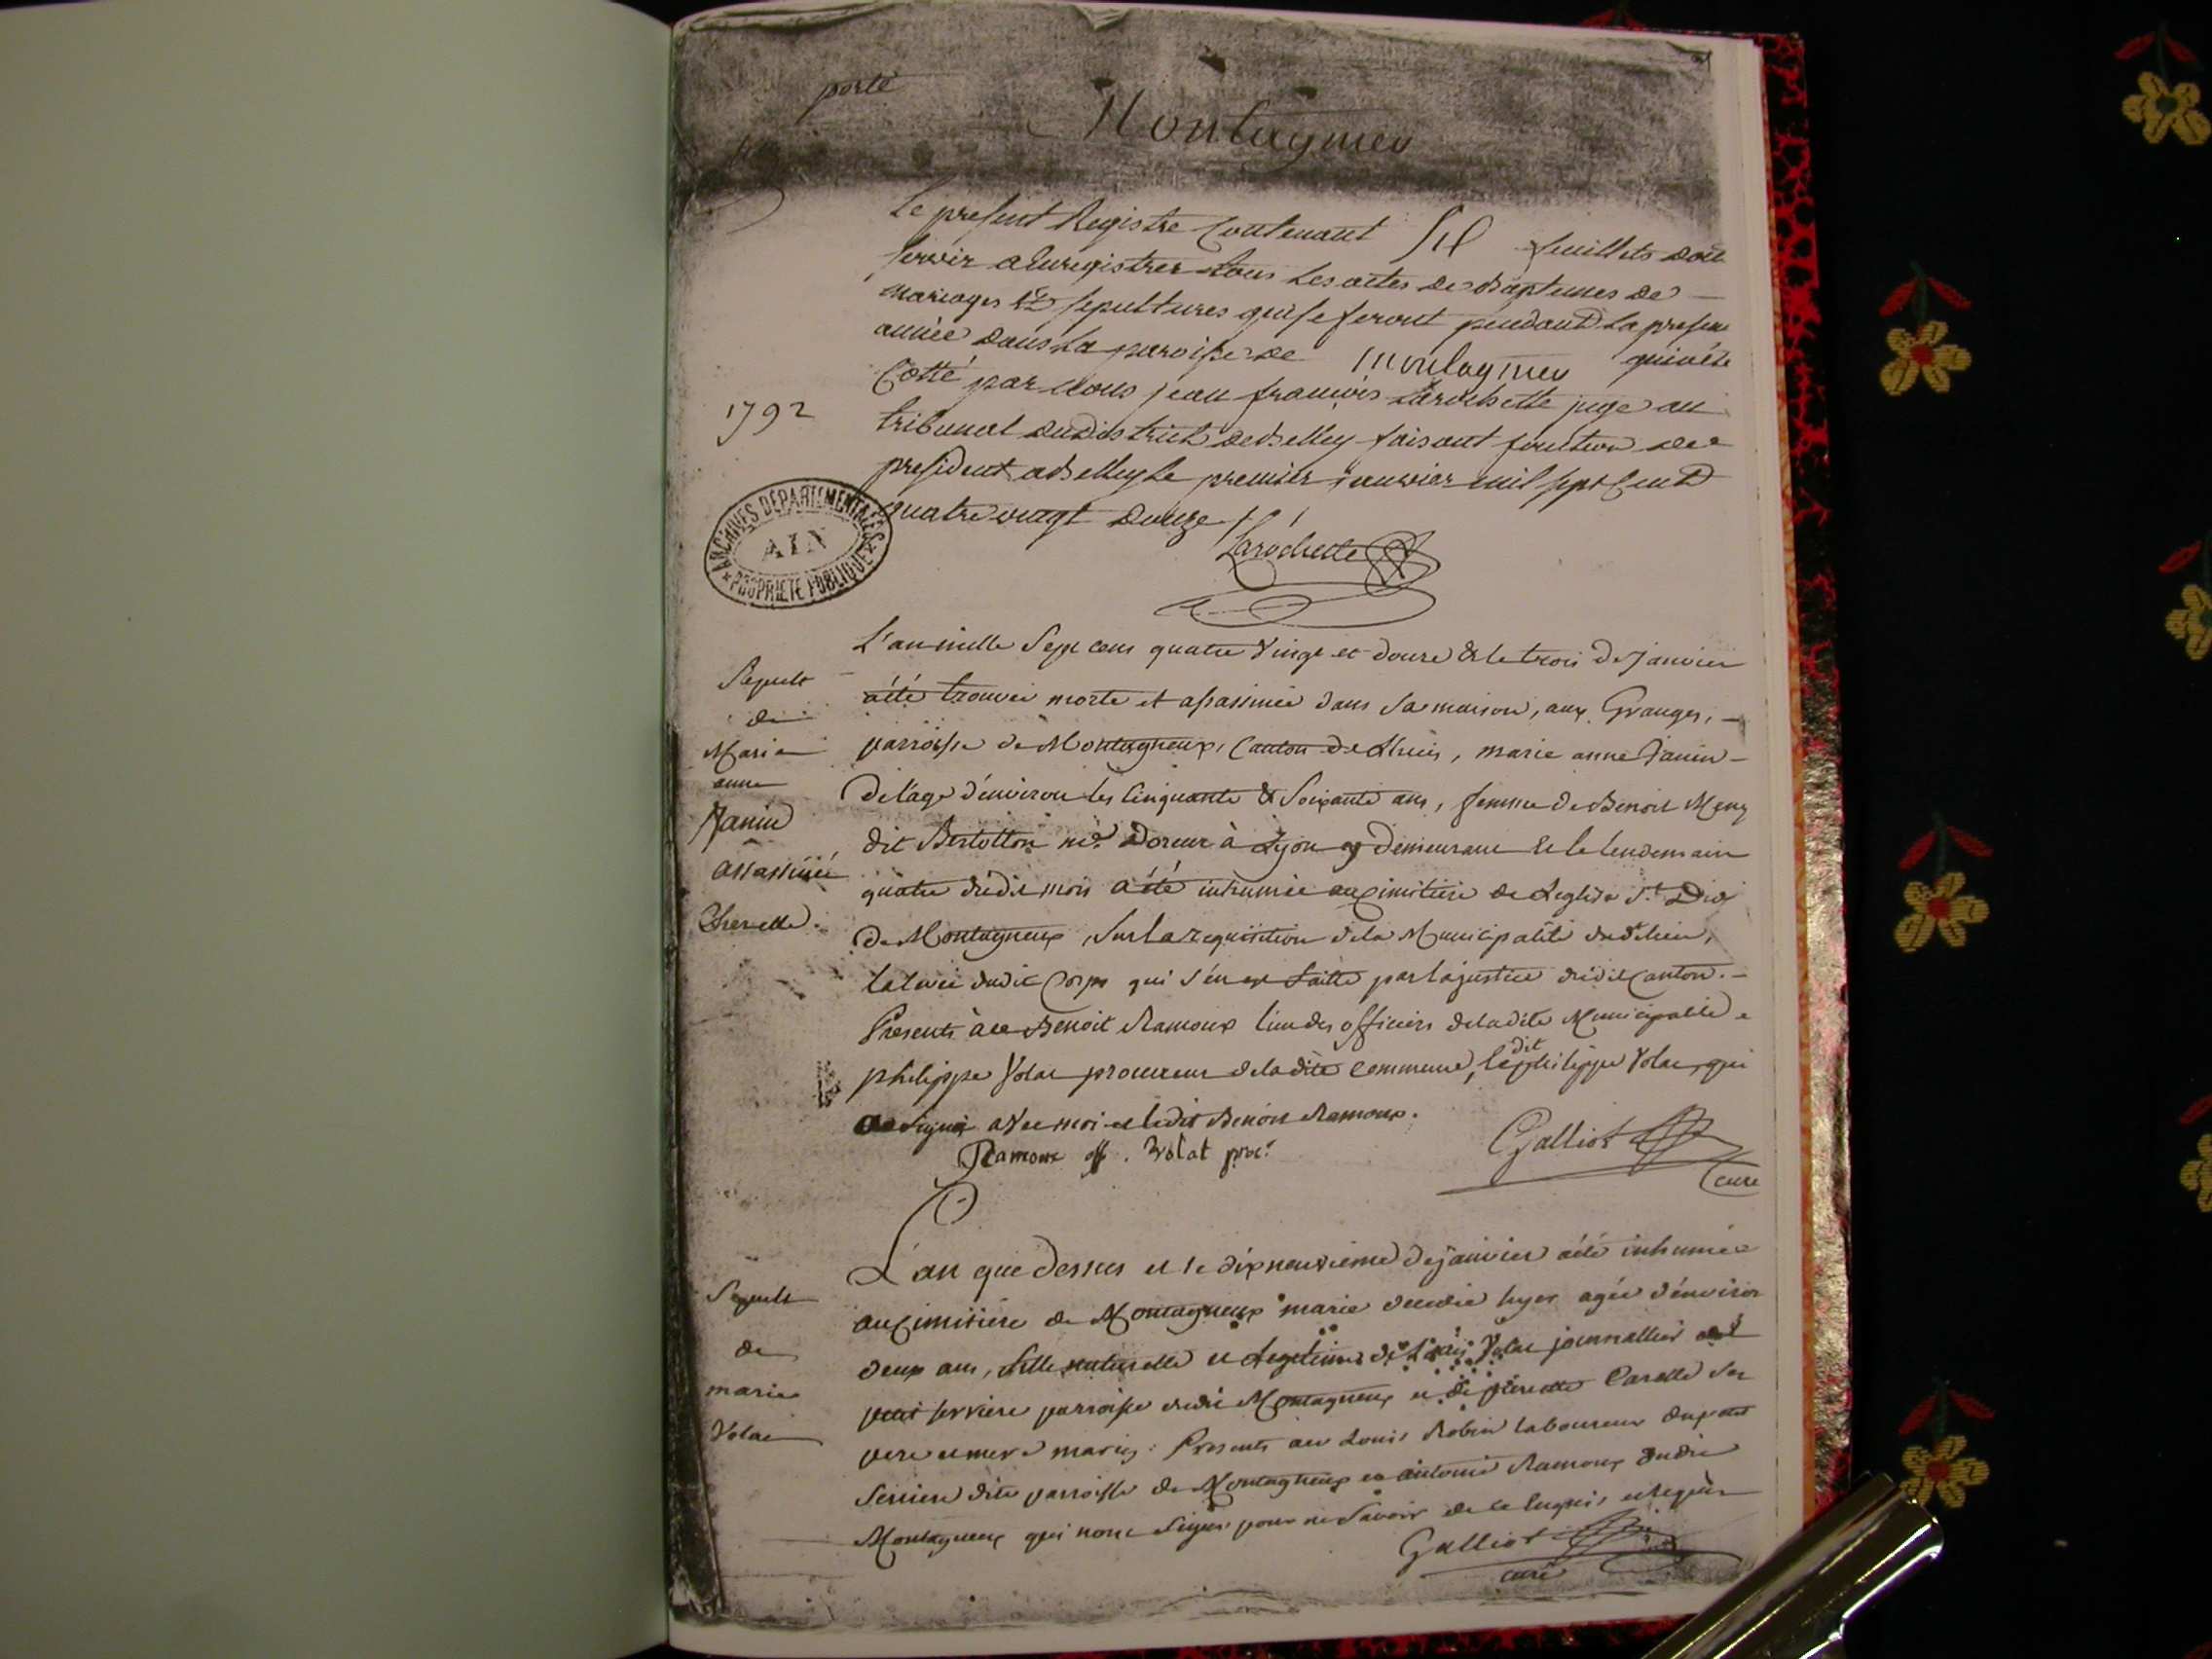 porté
Montagneu
Le present Registre Contenant Six feuillets doit
servir a Enregistrer tous Les actes de Baptemes de
mariages Et Sepultures qui se feront pendant La presente
année dans La paroisse de Montagneu qui a été
Cotté par Nous jean françois Larochette juge au
1792
tribunal du District de Belley faisant fonction de
president a Belley Le premier janvier mil sept Cent
quatre vingt douze
Larochette
ARCHIVES DÉPARTEMENTALES
AIN
PROPRIETE PUBLIQUE
L'an mille Sept cens quatre Vingt et douze & le trois de janvier
a été trouvée morte et assassinée dans Sa maison, aux Granges,
parroisse de Montagneux, Canton de Lhuis, marie anne Janin
de l'age d'environ les Cinquante & Soixante ans, femme de Benoit Meny
dit Bertollon doreur à Lyon y demeurant & le lendemain
quatre dudit mois a été inhumée au cimitiere de Leglise St
de Montagneux, Sur la requisition de la Municipalité dud. lieu,
la levée dudit Corps qui s'en est faitte par la justice dudit Canton.
Presents à ce Benoit Ramoux l'un des officiers de la dite Municipalité
philippe Volat procureur de la dite commune, ledit philippe Volat qui
a Signé avec moi et ledit Benoit Ramoux.
Ramoux off. Volat proc.r
Galliot
Curé
Sepult
de
Marie
anne
Janin
assassinée
L'an que dessus et le dixneuvieme de janvier a été inhumée
au cimitiere de Montagneux marie decedée hyer agée d'environ
deux ans, fille naturelle et Legitime de Volat journallier
petit serriere parroisse dudit Montagneux et de pierrette Carelle Ses
pere et mere mariés: Presents au Louis Robin laboureur du petit
Serriere dite parroisse de Montagneux et antoine Ramoux dudit
Montagneux qui n'ont Signé pour ne Savoir de ce Enquis et requis
Galliot
curé
Sepult
de
marie
Volat